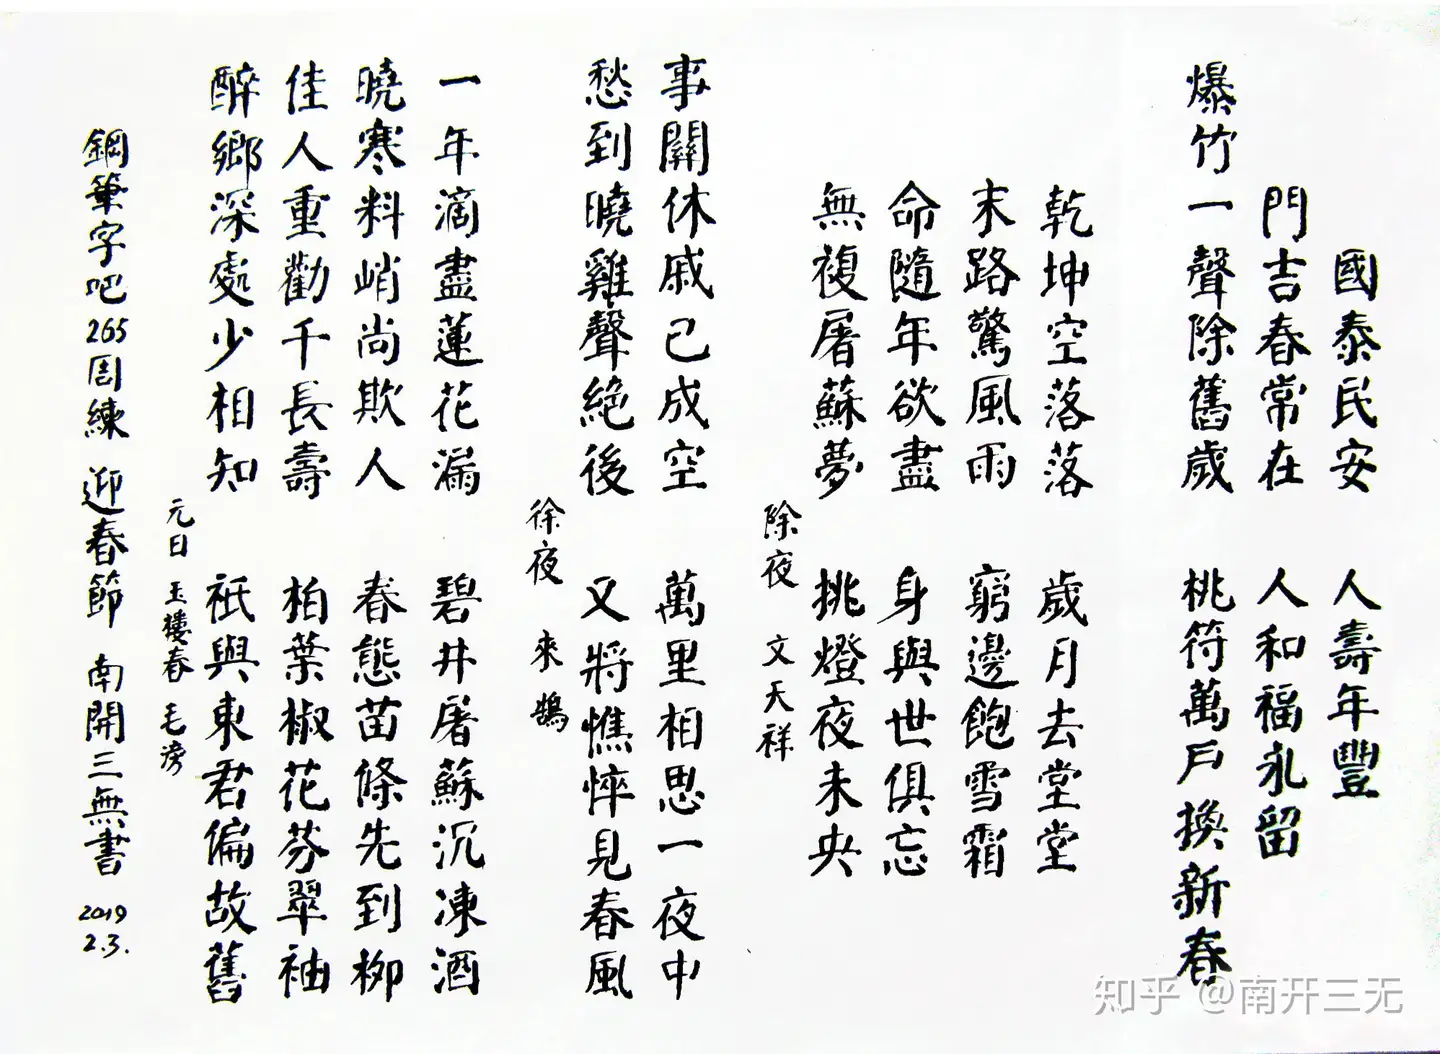 國泰民安 人壽年豐
門吉春常在 人和福永留
爆竹一聲除舊歲 桃符萬戶換新春
乾坤空落落 歲月去堂堂
末路驚風雨 窮邊飽雪霜
命隨年欲盡 身與世俱忘
無複屠蘇夢 挑燈夜未央
除夜 文天祥
事關休戚已成空 萬里相思一夜中
愁到曉雞聲絕後 又將憔悴見春風
徐夜 來鵠
一年滴盡蓮花漏 碧井屠蘇沉凍酒
曉寒料峭尚欺人 春態苗條先到柳
佳人重勸千長壽 柏葉椒花芬翠袖
醉鄉深處少相知 祇與東君偏故舊
元日 玉樓春 毛滂
鋼筆字吧265周練 迎春節 南開三無書 2019 2.3.
知乎 @南开三无